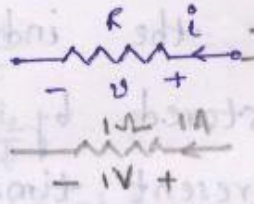 R i
- v +
1Ω 1A
- 1V +